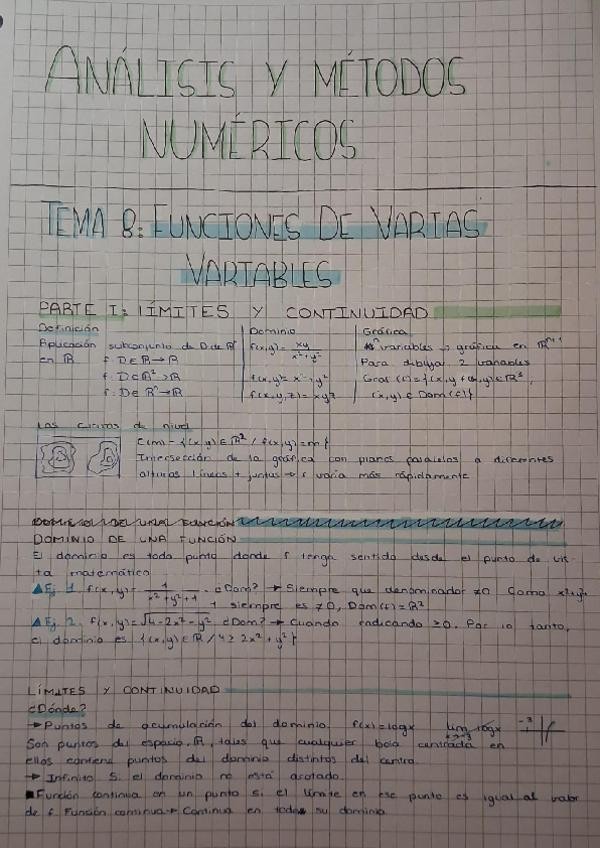 ANÁLISIS Y MÉTODOS
NUMÉRICOS
TEMA 8: FUNCIONES DE VARIAS
VARIABLES
PARTE I: LÍMITES Y CONTINUIDAD
Definición
Aplicación subconjunto de D de ℝⁿ
en ℝ f: D∈ℝ→ℝ
f: D⊂ℝ²→ℝ
f: D∈ℝⁿ→ℝ
Dominio
f(x,y)= xy/(x²+y²)
f(x,y)= x²+y²
f(x,y,z)= xyz
Gráfica
n variables → gráfica en ℝⁿ⁺¹
Para dibujar 2 variables
Graf (f)={(x,y,f(x,y))∈ℝ³,
(x,y)∈Dom(f)}
Las curvas de nivel
C(m)={(x,y)∈ℝ² / f(x,y)=m}
Intersección de la gráfica con planos paralelos a diferentes
alturas Líneas + juntas → f varía más rápidamente
DOMINIO DE UNA FUNCIÓN
DOMINIO DE UNA FUNCIÓN
El dominio es todo punto donde f tenga sentido desde el punto de vis-
ta matemático
Ej. 1. f(x,y)= 1/(x²+y²+1) ¿Dom? → Siempre que denominador ≠0 Como x²+y²+
1 siempre es ≠0, Dom(f)=ℝ²
Ej. 2. f(x,y)=√4-2x²-y² ¿Dom? → Cuando radicando ≥0. Por lo tanto,
el dominio es {(x,y)∈ℝ/4≥2x²+y²}
LÍMITES Y CONTINUIDAD
¿Dónde?
→ Puntos de acumulación del dominio. f(x)=logx lim logx
Son puntos del espacio, ℝ, tales que cualquier bola centrada en
ellos contiene puntos del dominio distintos del centro.
→ Infinito Si el dominio no está acotado.
Función continua en un punto si el límite en ese punto es igual al valor
de f Función continua → Continua en todo su dominio